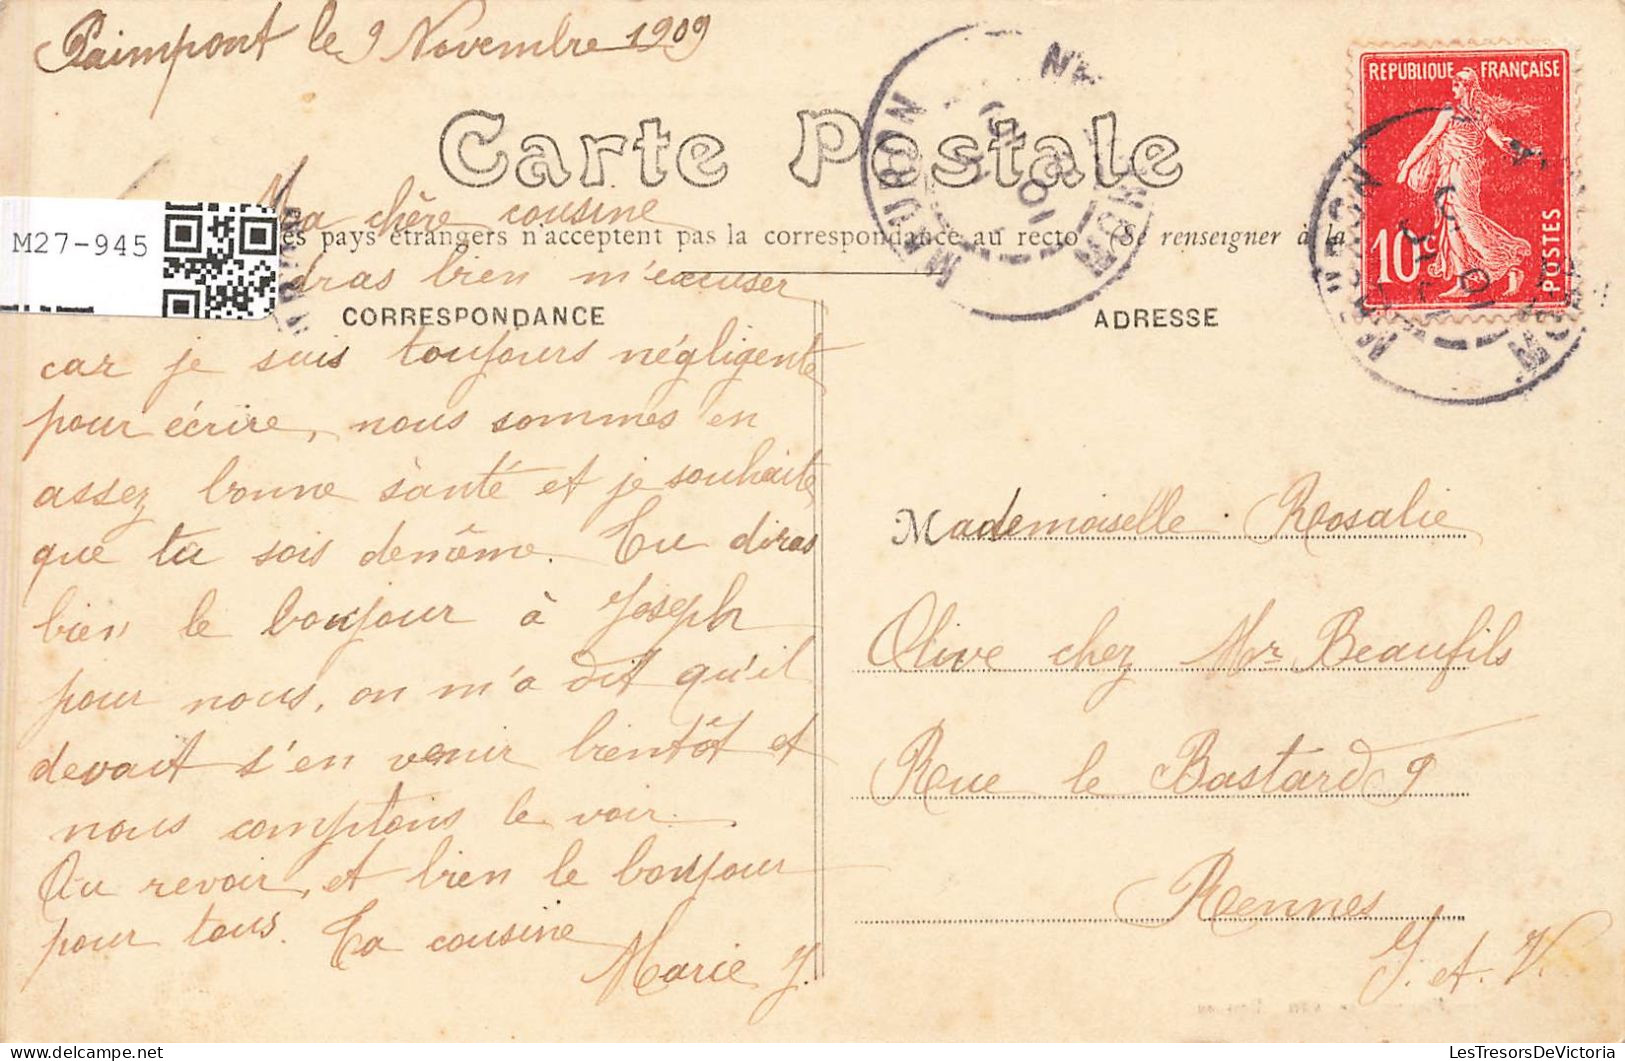 Paimpont le 9 Novembre 1909
Carte Postale
Ma chère cousine
pays étrangers n'acceptent pas la correspondance au recto (Se renseigner à la
dras bien m'excuser
CORRESPONDANCE
car je suis toujours négligente
pour écrire, nous sommes en
assez bonne santé et je souhaite
que tu sois demême. Tu diras
bien le bonjour à Joseph
pour nous, on m'a dit qu'il
devait s'en venir bientôt et
nous comptons le voir.
Au revoir, et bien le bonjour
pour tous. Ta cousine
Marie J.
ADRESSE
Mademoiselle Rosalie
Olive chez Mr Beaufils
Rue le Bastard 9
Rennes
I. et. V.
REPUBLIQUE FRANÇAISE
10c
POSTES
MAURON
MOR
MAURON
MOR
M27-945
LesTresorsDeVictoria